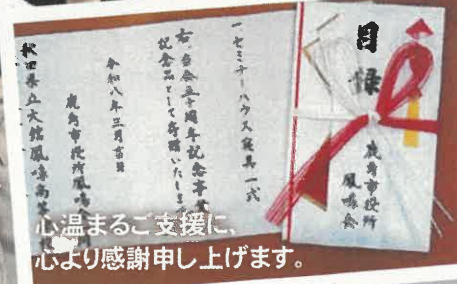 目録
鹿角市役所
鳳鳴会
一 セミナーハウス寝具一式
右、当会五十周年記念事業
記念品として寄贈いたします
令和八年三月吉日
鹿角市役所鳳鳴
秋田県立大館鳳鳴高等
心温まるご支援に、
心より感謝申し上げます。